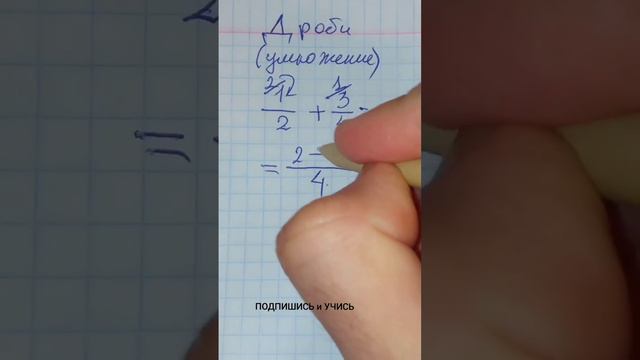 Дроби
(умножение)
2 1
1 3
2 + 4
= 2 –
4
ПОДПИШИСЬ и УЧИСЬ